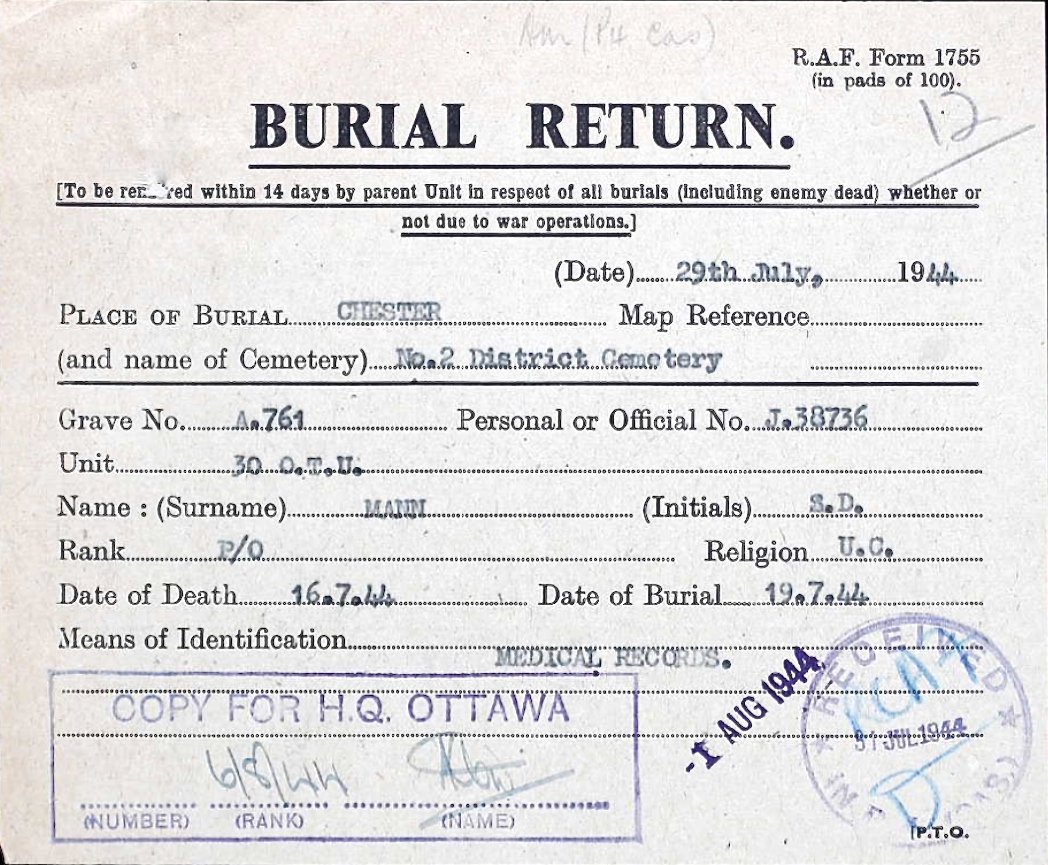 R.A.F. Form 1755
(in pads of 100).
12
BURIAL RETURN.
[To be ren red within 14 days by parent Unit in respect of all burials (including enemy dead) whether or
not due to war operations.]
(Date) 29th July, 1944
PLACE OF BURIAL CHESTER Map Reference
(and name of Cemetery) No.2 District Cemetery
Grave No. A.761 Personal or Official No. J.38736
Unit 30 O.T.U.
Name : (Surname) MANN (Initials) S.D.
Rank P/O Religion U.C.
Date of Death 16.7.44 Date of Burial 19.7.44
Means of Identification
MEDICAL RECORDS.
COPY FOR H.Q. OTTAWA
6/8/44
(NUMBER) (RANK) (NAME)
-1 AUG 1944
RECEIVED
RCAF
31 JUL 1944
IN
D
P.T.O.